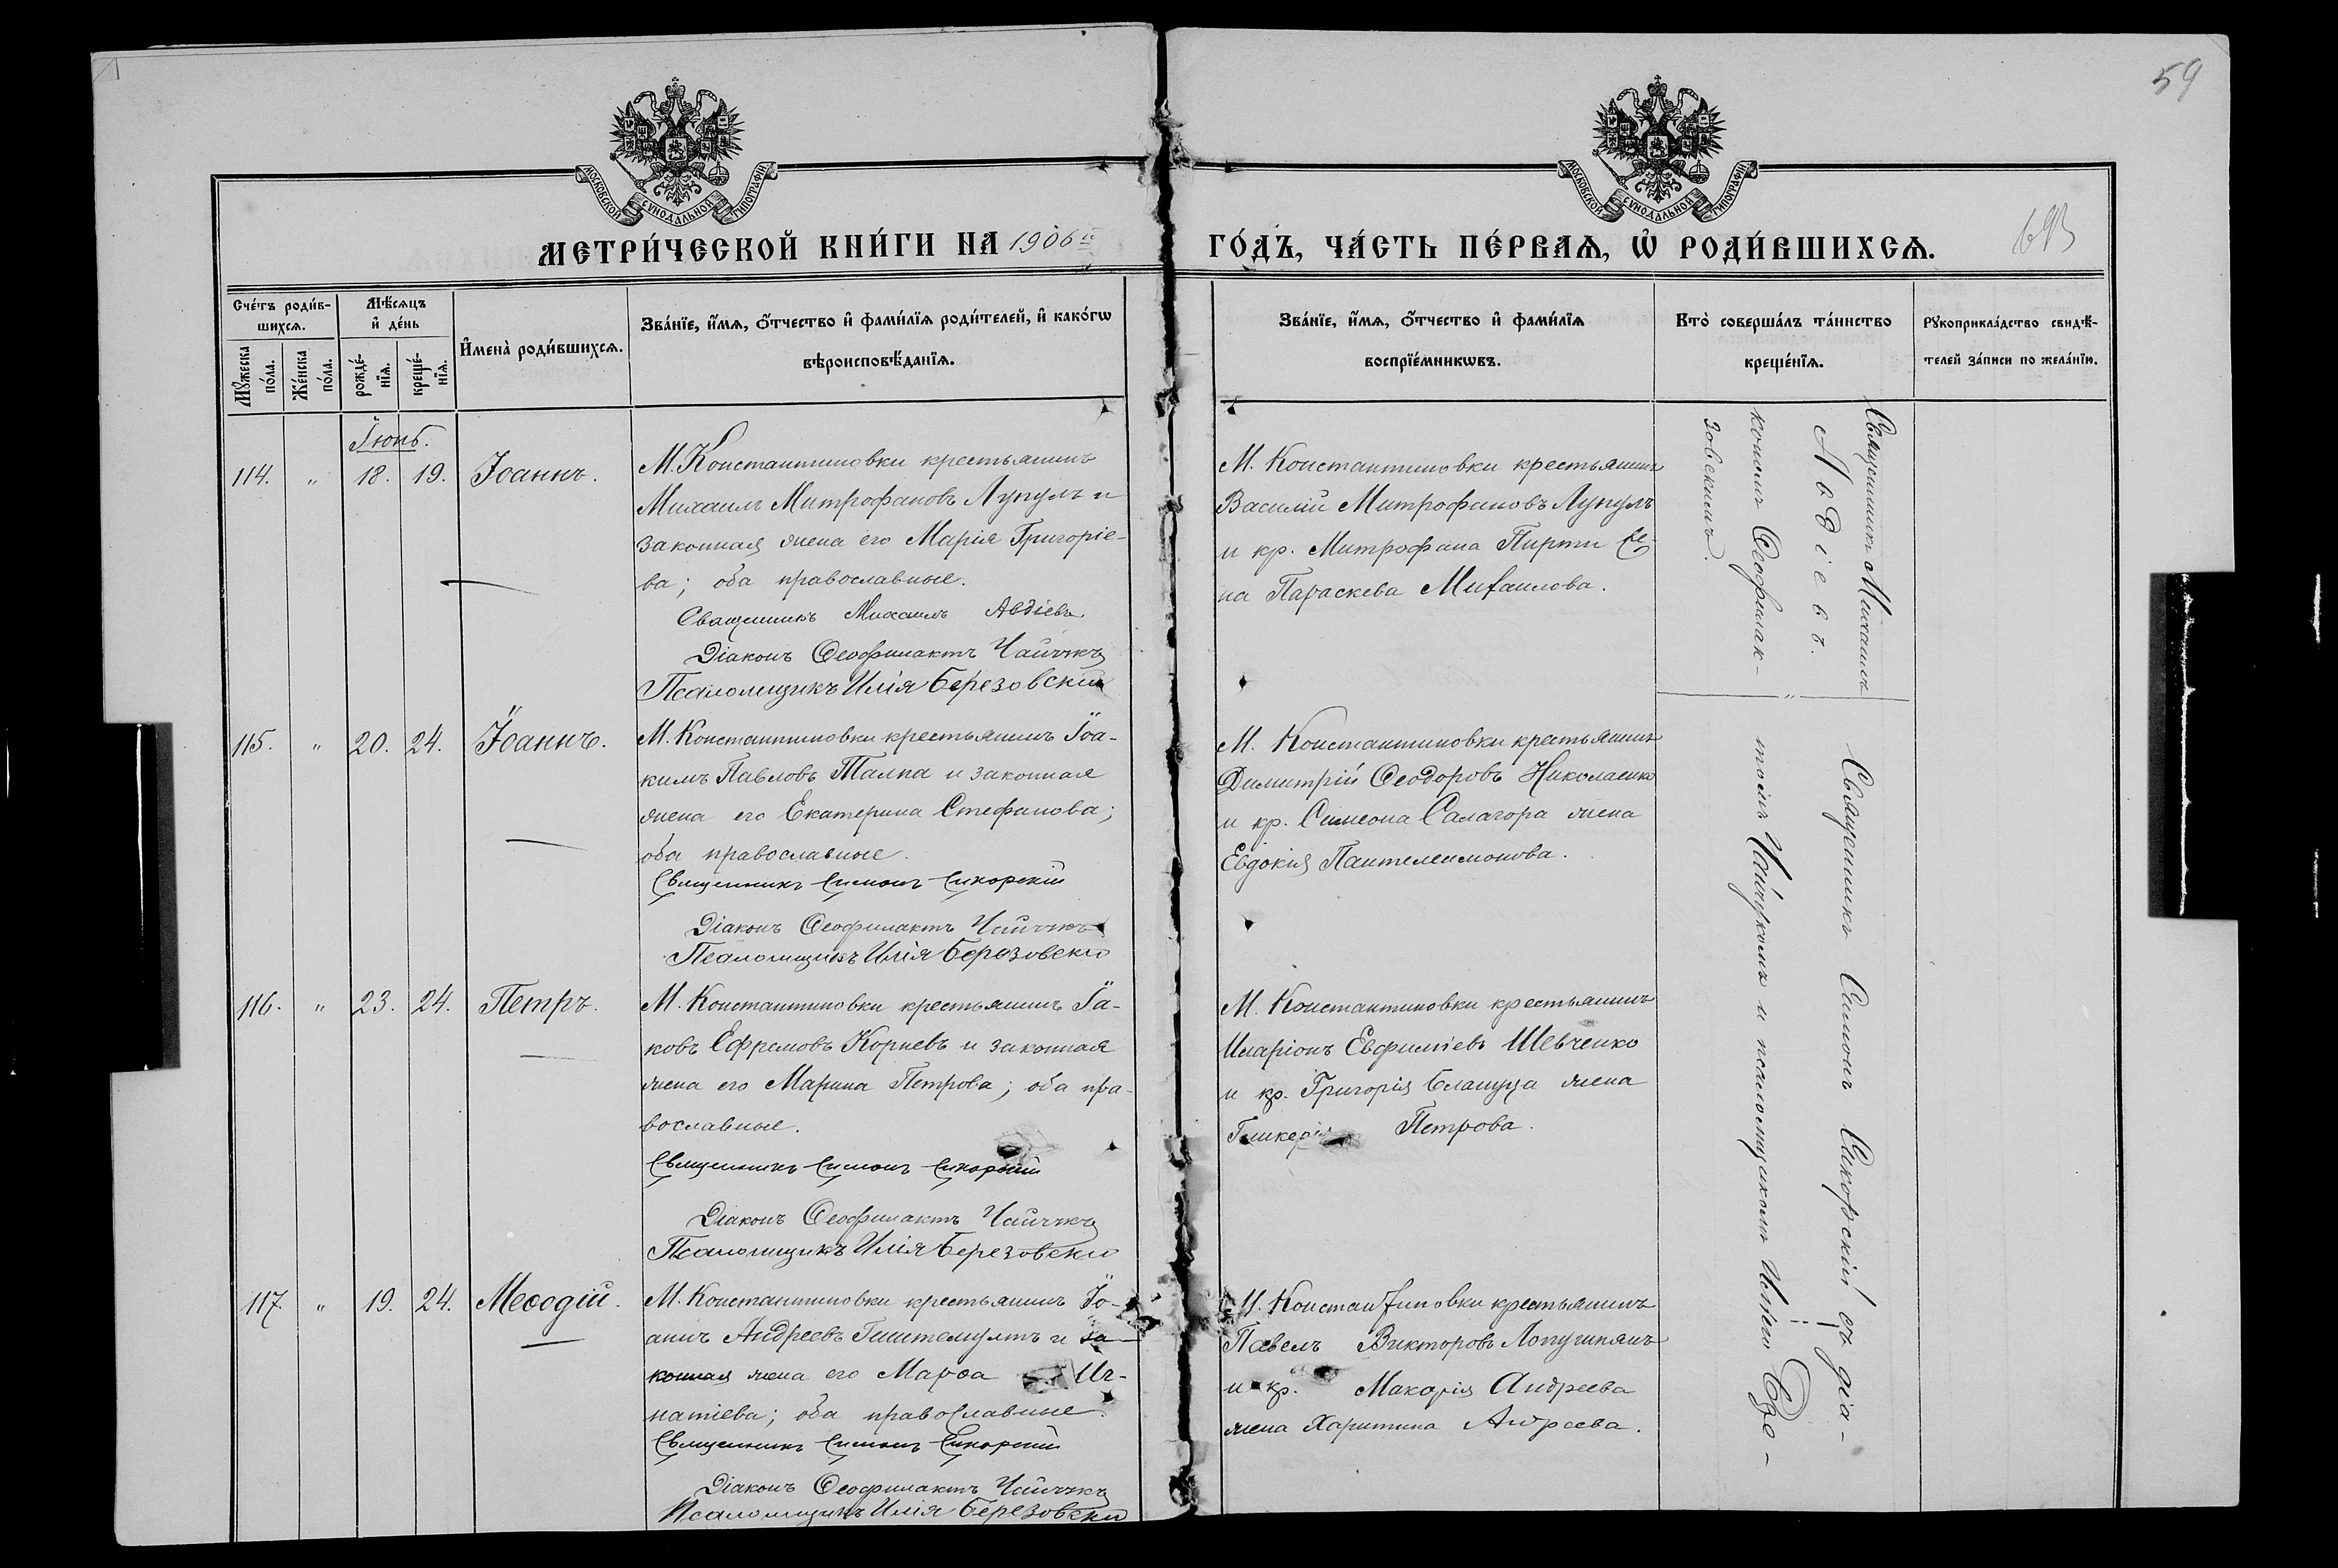 59
МОСКОВСКОЙ СѴНОДАЛЬНОЙ ТИПОГРАФІИ
МОСКОВСКОЙ СѴНОДАЛЬНОЙ ТИПОГРАФІИ
МЕТРИ́ЧЕСКОЙ КНИ́ГИ НА 1906 й
ГО́ДЪ, ЧА́СТЬ ПЕ́РВАѦ, Ѽ РОДИ́ВШИХСѦ.
Сче́тъ роди́в-
шихсѧ.
Мꙋжеска по́ла.
Же́нска по́ла.
Мѣ́сѧцъ
и҆ де́нь
рожде́-
нїѧ.
креще́-
нїѧ.
И҆мена̀ роди́вшихсѧ.
Зва́нїе, и҆́мѧ, ѻ҆́тчество и҆ фами́лїѧ роди́телей, и҆ како́гѡ
вѣроисповѣ́данїѧ.
Зва́нїе, и҆́мѧ, ѻ҆́тчество и҆ фами́лїѧ
воспрїе́мникѡвъ.
Кто̀ соверша́лъ та́инство
креще́нїѧ.
Рꙋкоприкла́дство свидѣ́-
телей за́писи по жела́нїи.
Іюнь.
114. " 18. 19. Іоаннъ.
М. Константиновки крестьянинъ
Михаилъ Митрофановъ Лупулъ и
законная жена его Марія Григоріе-
ва; оба православные.
Священникъ Михаилъ Авдіевъ
Діаконъ Ѳеофилактъ Чайчукъ
Псаломщикъ Илія Березовскій
М. Константиновки крестьянинъ
Василій Митрофановъ Лупулъ
и кр. Митрофана Пирти же-
на Параскева Михаилова.
115. " 20. 24. Іоаннъ.
М. Константиновки крестьянинъ Іоа-
кимъ Павловъ Талпа и законная
жена его Екатерина Стефанова;
оба православные.
Священникъ Симонъ Сикорскій
Діаконъ Ѳеофилактъ Чайчукъ
Псаломщикъ Илія Березовскій
М. Константиновки крестьянинъ
Димитрій Ѳеодоровъ Николаенко
и кр. Симеона Салагора жена
Евдокія Пантелеимонова.
116. " 23. 24. Петръ.
М. Константиновки крестьянинъ Іа-
ковъ Ефремовъ Корневъ и законная
жена его Марина Петрова; оба пра-
вославные.
Священникъ Симонъ Сикорскій
Діаконъ Ѳеофилактъ Чайчукъ
Псаломщикъ Илія Березовскій
М. Константиновки крестьянинъ
Иларіонъ Евфиміевъ Шевченко
и кр. Григорія Блащуца жена
Гликерія Петрова.
117. " 19. 24. Меѳодій.
М. Константиновки крестьянинъ Іо-
аннъ Андреевъ и за-
конная жена его Марѳа Иг-
натіева; оба православные.
Священникъ Симонъ Сикорскій
Діаконъ Ѳеофилактъ Чайчукъ
Псаломщикъ Илія Березовскій
М. Константиновки крестьянинъ
Павелъ Викторовъ
и кр. Макарія Андреева
жена Харитина Андреева.
Священникъ Михаилъ
Авдіевъ.
Священникъ Симонъ Сикорскій съ діа-
кономъ Ѳеофилак-
томъ Чайчукомъ и псаломщикомъ Иліею Бере-
зовскимъ.